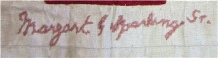 Margart G Sparling Sr.